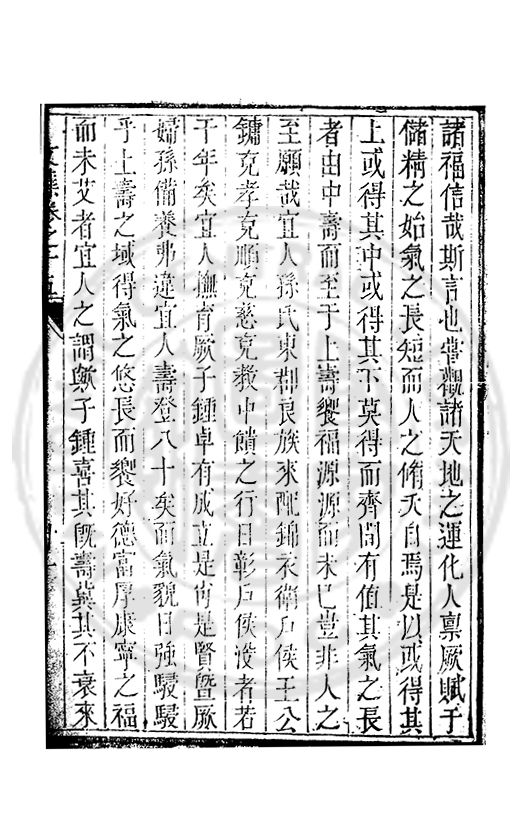 諸福信哉斯言也嘗觀諸天地之運化人稟厥賦于
儲精之始氣之長短而人之脩夭自焉是以或得其
上或得其中或得其下莫得而齊間有值其氣之長
者由中壽而至于上壽饗福源源而未已豈非人之
至願哉宜人孫氏東郡良族來配錦衣衛戶侯王公
鏞克孝克順克慈克教中饋之行日彰戶侯沒者若
干年矣宜人撫育厥子鍾卓有成立是肖是賢暨厥
婦孫備養弗違宜人壽登八十矣而氣貌日強駸駸
乎上壽之域得氣之悠長而饗好德富厚康寧之福
而未艾者宜人之謂歟子鍾喜其既壽冀其不衰來
卷之十五